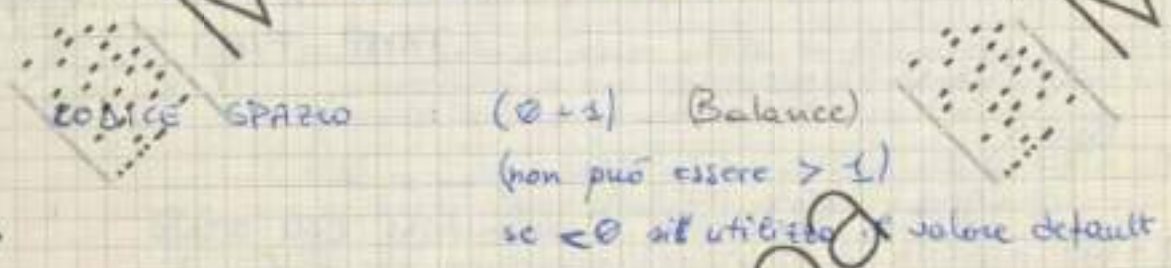 CODICE SPAZIO : (0-1) (Balance)
(non può essere > 1)
se <0 si utilizza il valore default